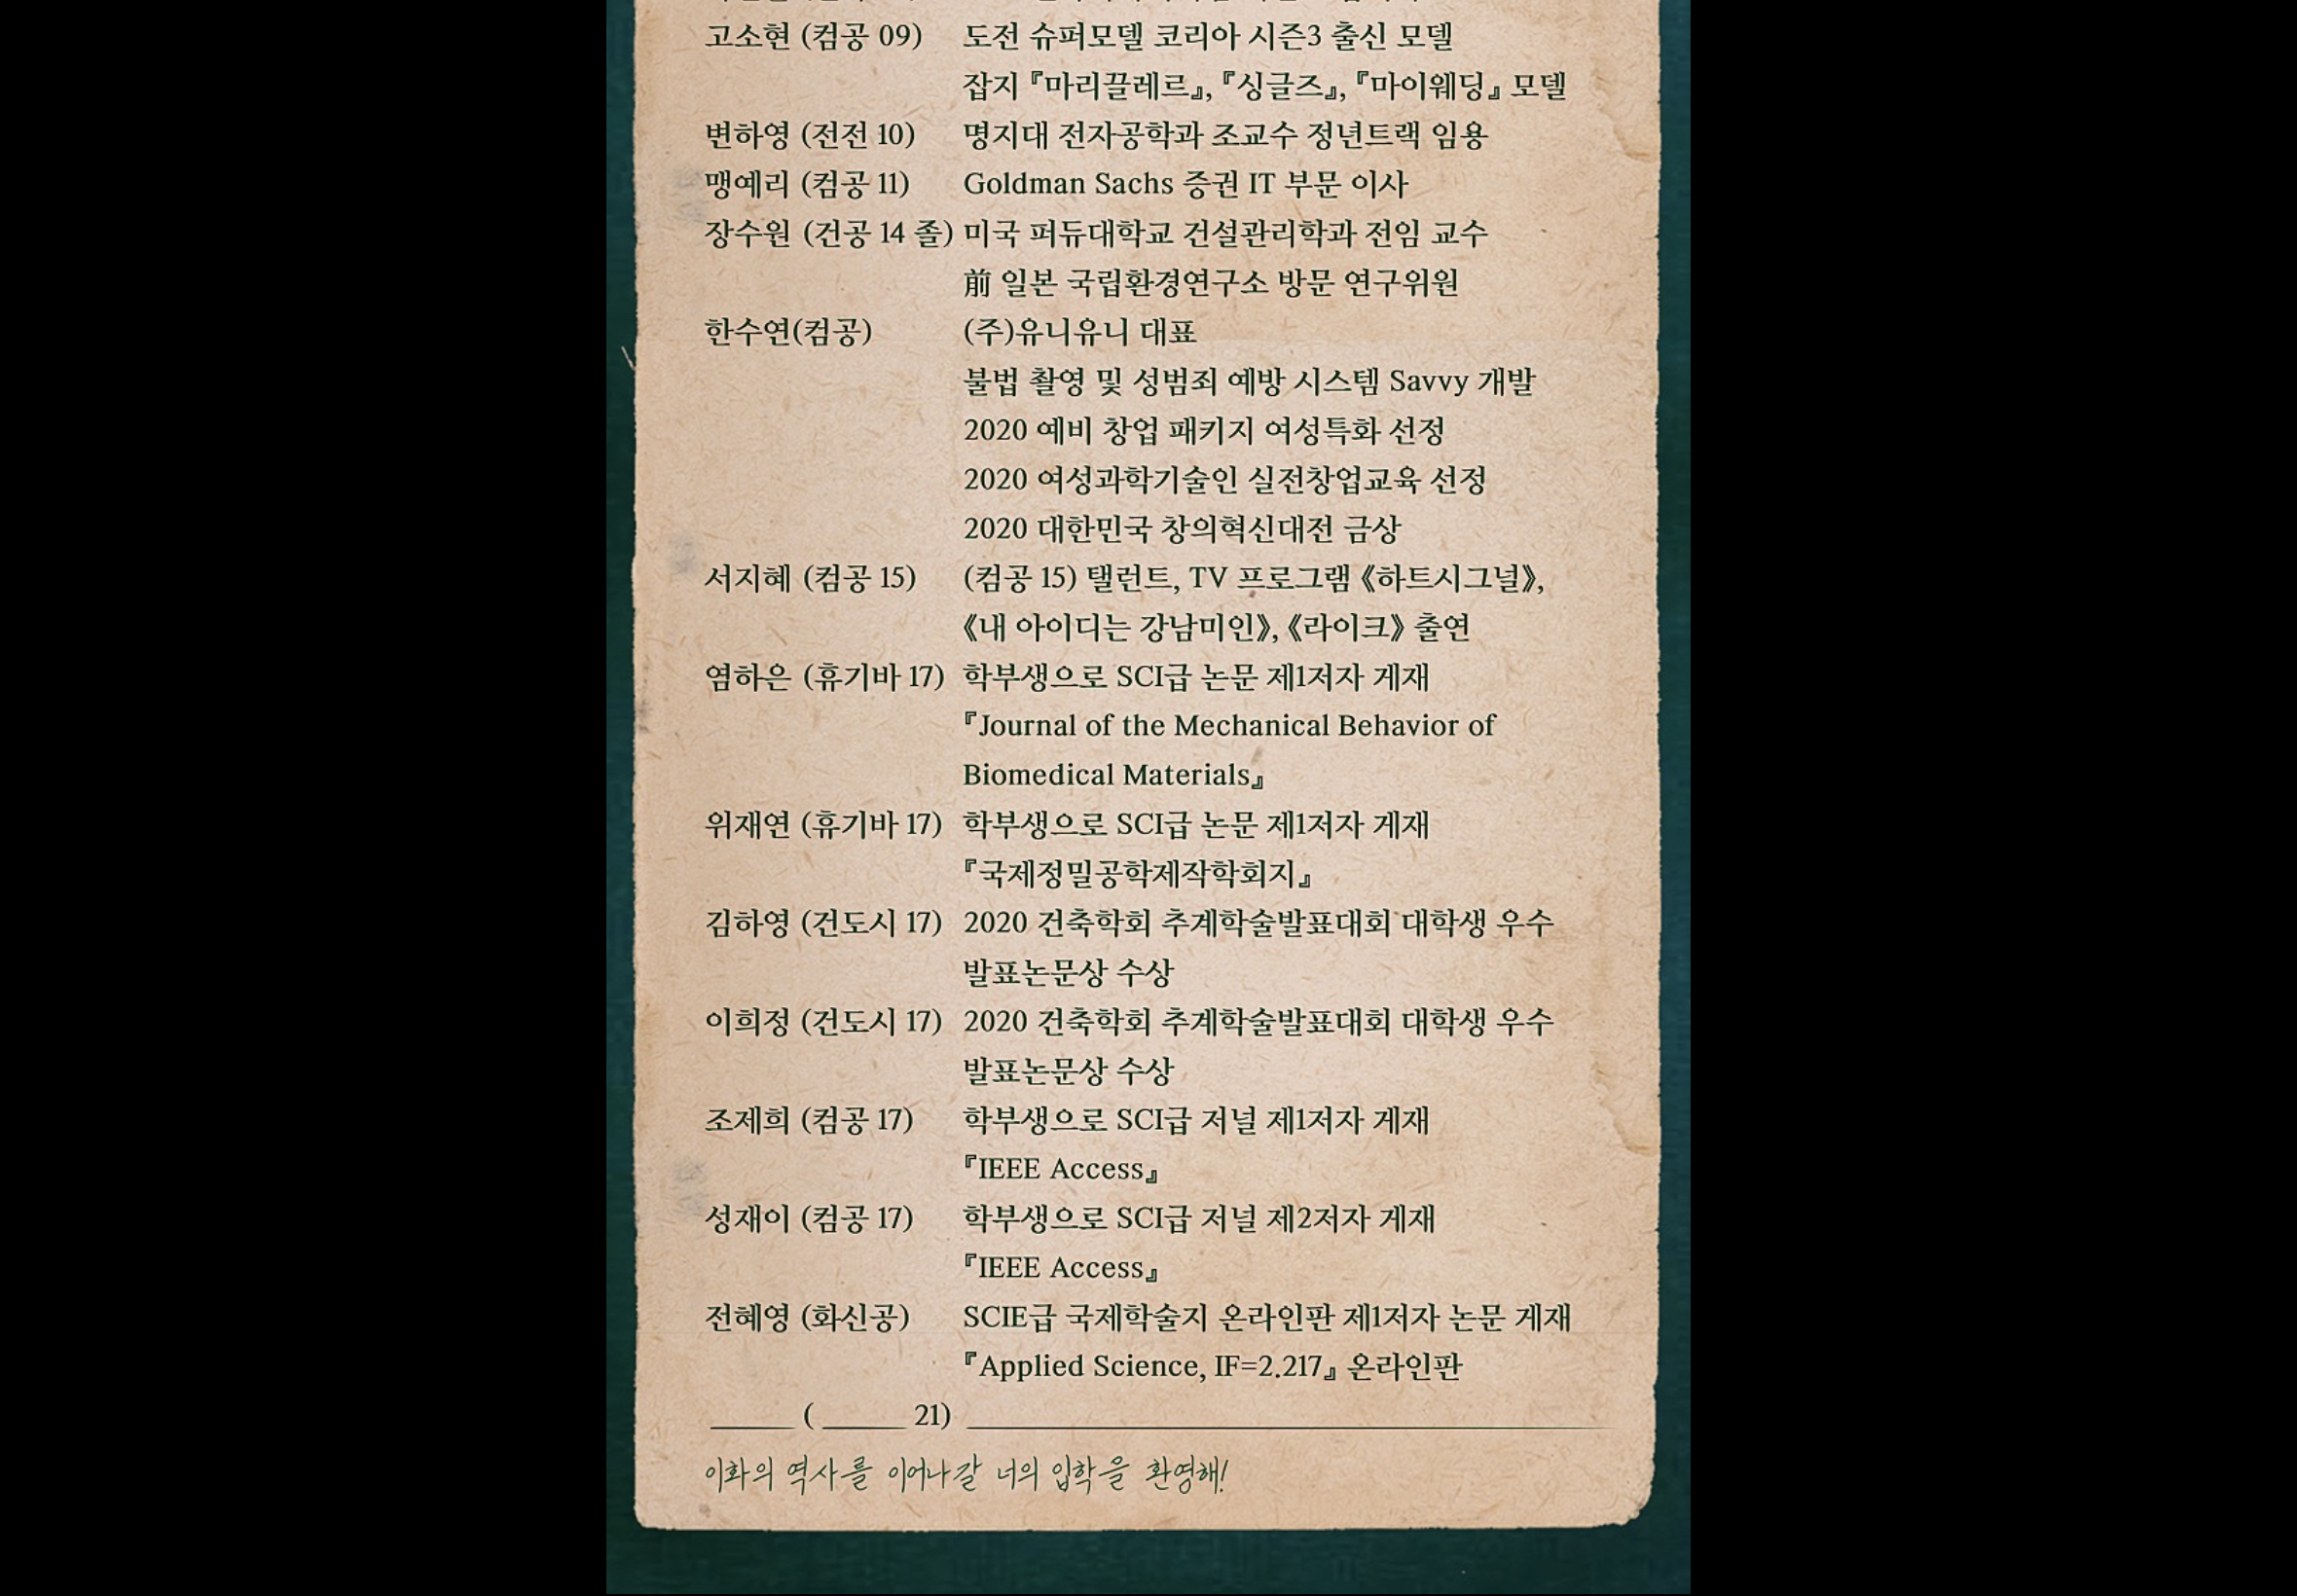 고소현 (컴공 09) 도전 슈퍼모델 코리아 시즌3 출신 모델
잡지 『마리끌레르』, 『싱글즈』, 『마이웨딩』 모델
변하영 (전전 10) 명지대 전자공학과 조교수 정년트랙 임용
맹예리 (컴공 11) Goldman Sachs 증권 IT 부문 이사
장수원 (건공 14 졸) 미국 퍼듀대학교 건설관리학과 전임 교수
前 일본 국립환경연구소 방문 연구위원
한수연(컴공) (주)유니유니 대표
불법 촬영 및 성범죄 예방 시스템 Savvy 개발
2020 예비 창업 패키지 여성특화 선정
2020 여성과학기술인 실전창업교육 선정
2020 대한민국 창의혁신대전 금상
서지혜 (컴공 15) (컴공 15) 탤런트, TV 프로그램 《하트시그널》,
《내 아이디는 강남미인》, 《라이크》 출연
염하은 (휴기바 17) 학부생으로 SCI급 논문 제1저자 게재
『Journal of the Mechanical Behavior of
Biomedical Materials』
위재연 (휴기바 17) 학부생으로 SCI급 논문 제1저자 게재
『국제정밀공학제작학회지』
김하영 (건도시 17) 2020 건축학회 추계학술발표대회 대학생 우수
발표논문상 수상
이희정 (건도시 17) 2020 건축학회 추계학술발표대회 대학생 우수
발표논문상 수상
조제희 (컴공 17) 학부생으로 SCI급 저널 제1저자 게재
『IEEE Access』
성재이 (컴공 17) 학부생으로 SCI급 저널 제2저자 게재
『IEEE Access』
전혜영 (화신공) SCIE급 국제학술지 온라인판 제1저자 논문 게재
『Applied Science, IF=2.217』 온라인판
_____ ( _____ 21) _____
이화의 역사를 이어나갈 너의 입학을 환영해!